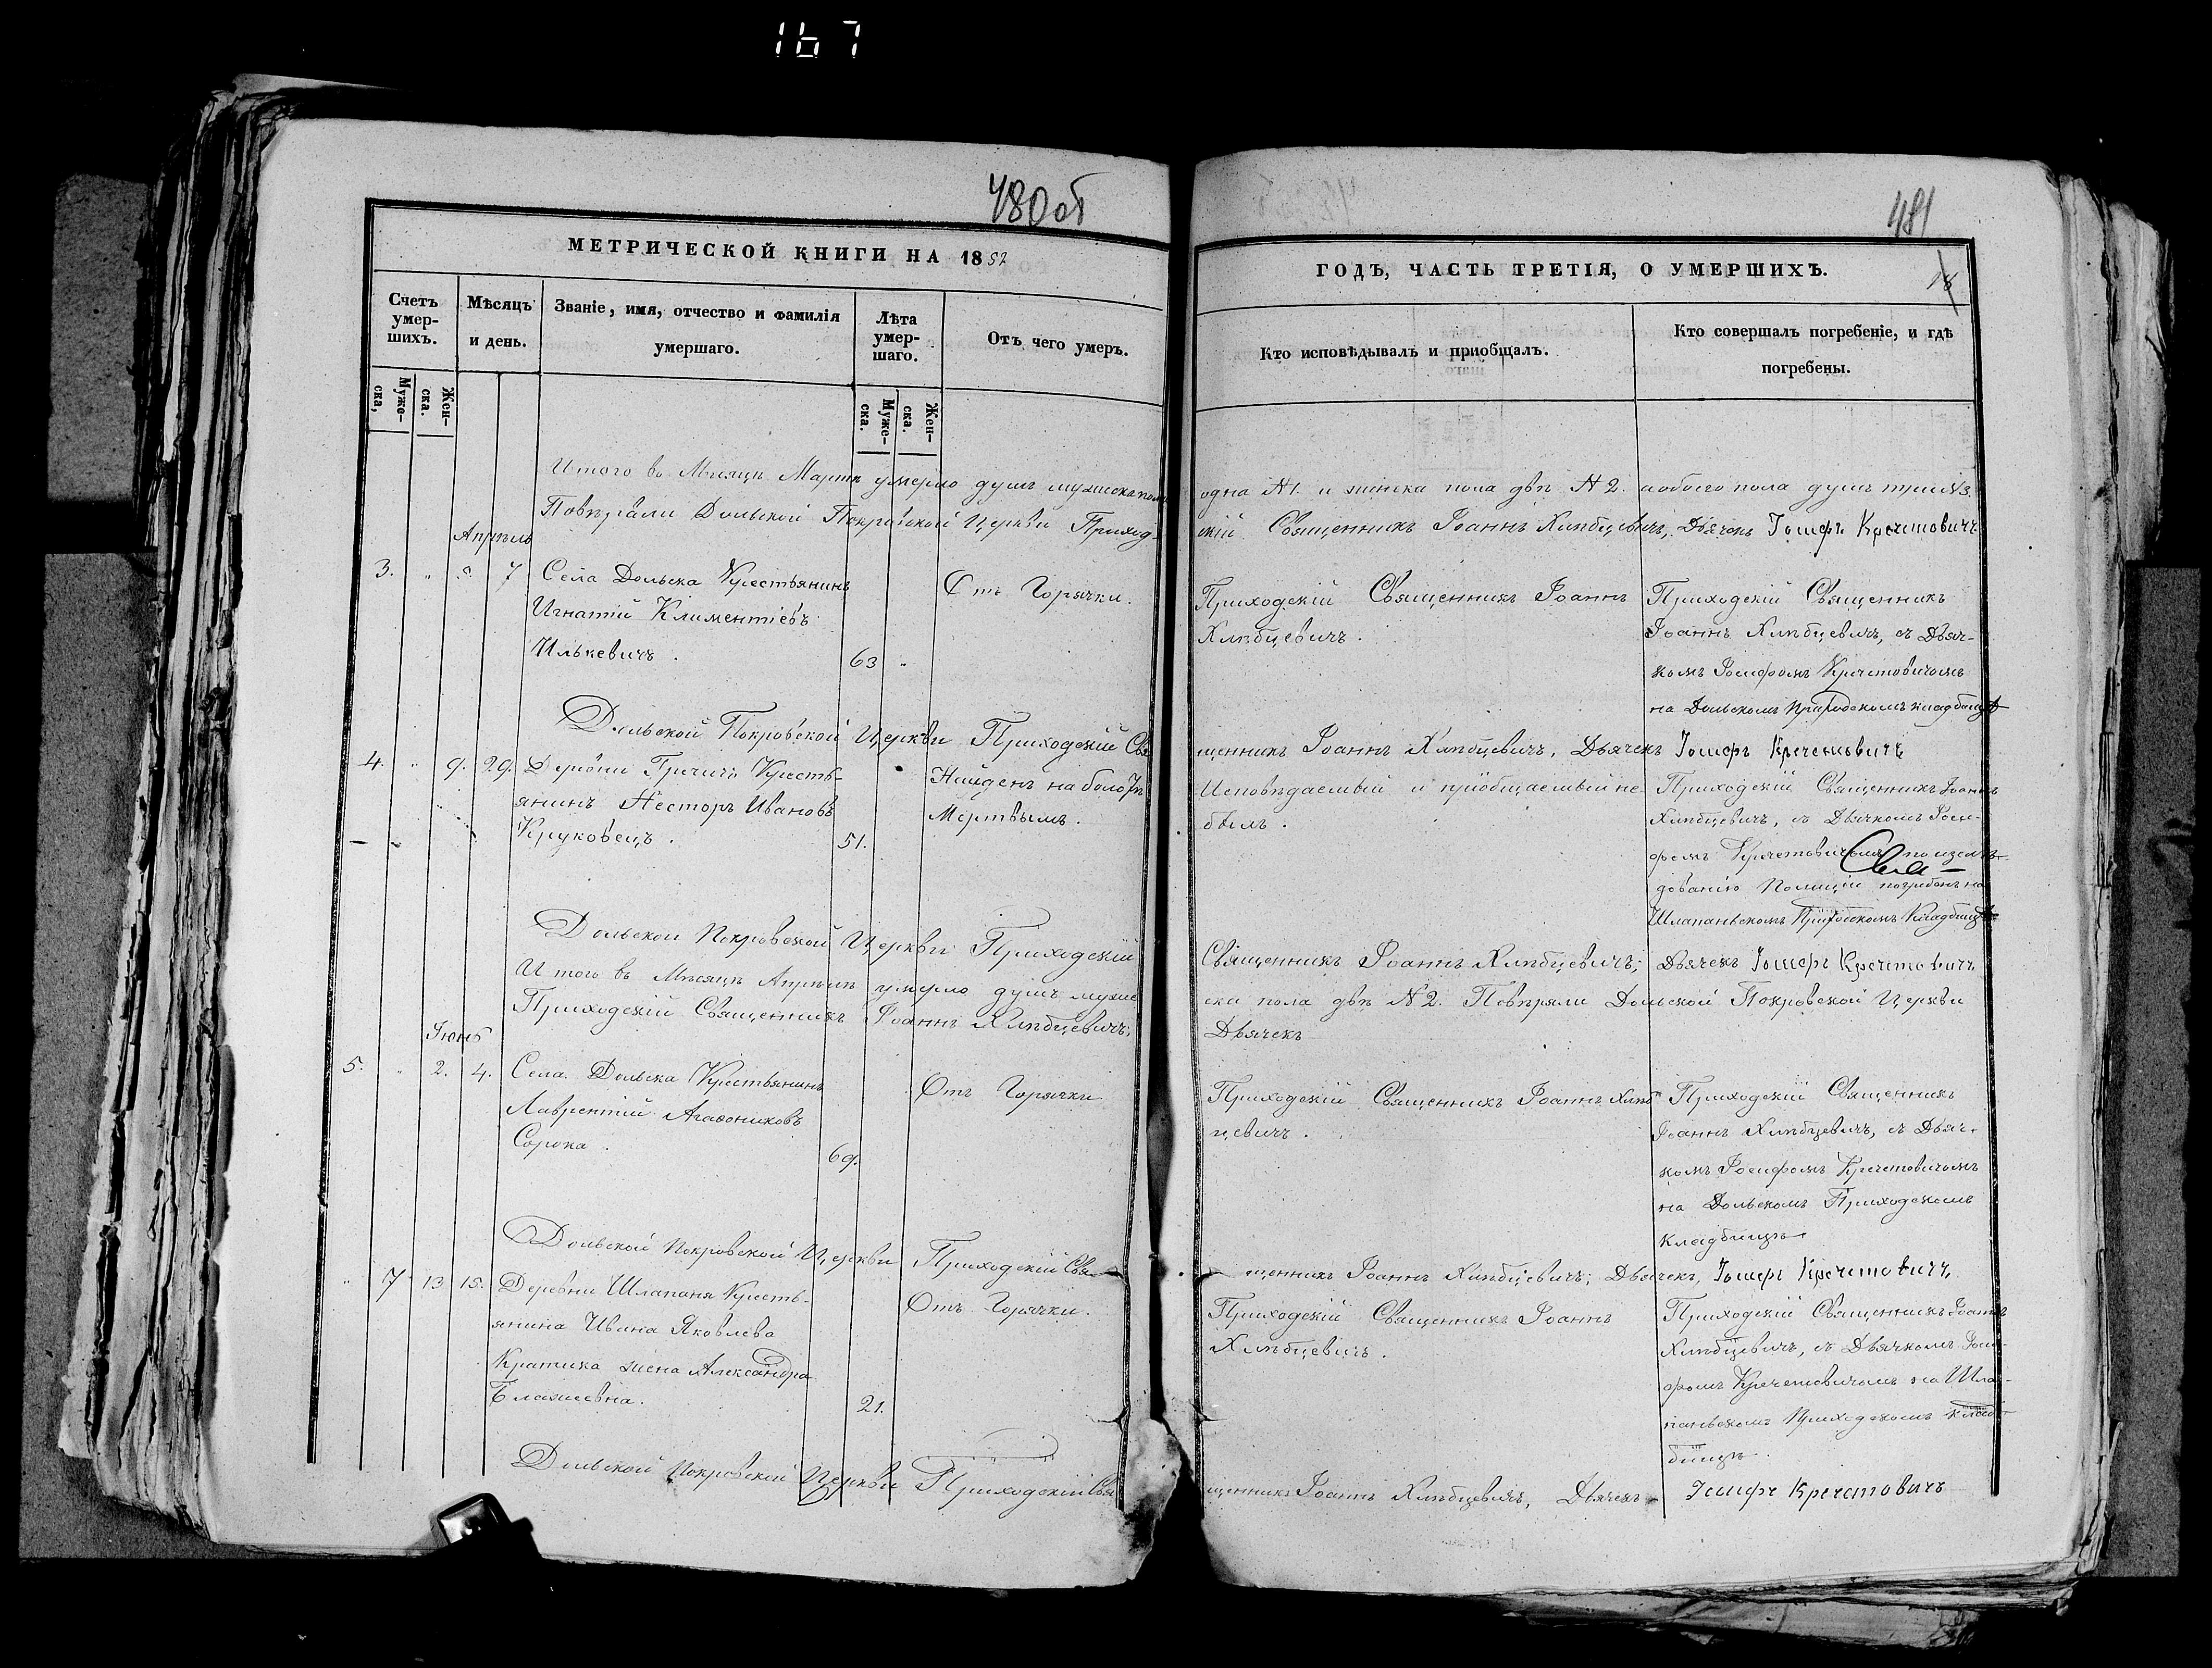 167
480об
МЕТРИЧЕСКОЙ КНИГИ НА 1852
Счетъ умер-шихъ.
Муже-ска,
Жен-ска.
Мѣсяцъ и день.
Званіе, имя, отчество и фамилія умершаго.
Лѣта умер-шаго.
Муже-ска.
Жен-ска.
Отъ чего умеръ.
Итого въ Мѣсяцѣ Мартѣ умерло душъ мужеска пола
Повѣряли Дольской Покровской Церкви Приход-
Апрѣль
3. „ 5. 7 Села Дольска Крестьянинъ
Игнатій Климентіевъ
Илькевичъ. 63 „
Отъ Горячки.
Дольской Покровской Церкви Приходскій Свя
4. „ 9. 29. Деревни Гречичъ Кресть-
янинъ Несторъ Ивановъ
Круковецъ. 51.
Найденъ на болотѣ
Мертвымъ.
Дольской Покровской Церкви Приходскій
Итого въ Мѣсяцѣ Апрѣлѣ умерло душъ муже
Приходскій Священникъ Іоаннъ Хлѣбцевичъ;
Іюнь
5. „ 2. 4. Села Дольска Крестьянинъ
Лаврентій Агаѳониковъ
Сорока. 69.
Отъ Горячки
Дольской Покровской Церкви Приходскій Свя
„ 7 13 15. Деревни Шлапаня Кресть-
янина Ивана Яковлева
Кратика жена Александра
Блажіевна. 21.
Отъ Горячки.
Дольской Покровской Церкви Приходскій Свя
481
ГОДЪ, ЧАСТЬ ТРЕТІЯ, О УМЕРШИХЪ.
Кто исповѣдывалъ и приобщалъ.
Кто совершалъ погребеніе, и гдѣ погребены.
одна №1. и женска пола двѣ №2. а обоего пола душъ три №3.
скій Священникъ Іоаннъ Хлѣбцевичъ, Дьячекъ Іосифъ Кречетовичъ
Приходскій Священникъ Іоаннъ
Хлѣбцевичъ.
Приходскій Священникъ
Іоаннъ Хлѣбцевичъ, съ Дьяч-
комъ Іосифомъ Кречетовичомъ
на Дольскомъ Приходскомъ кладбищѣ
щенникъ Іоаннъ Хлѣбцевичъ, Дьячекъ Іосифъ Кречетовичъ
Исповѣдаемый и пріобщаемый не
былъ.
Приходскій Священникъ Іоаннъ
Хлѣбцевичъ, съ Дьячкомъ Іоси-
фомъ Кречетовичомъ по изслѣ-
дованію Полиціи погребенъ на
Шлапаньскомъ Приходскомъ Кладбищѣ
Священникъ Іоаннъ Хлѣбцевичъ; Дьячекъ Іосифъ Кречетовичъ
ска пола двѣ №2. Повѣряли Дольской Покровской Церкви
Дьячекъ
Приходскій Священникъ Іоаннъ Хлѣб
цевичъ.
Приходскій Священникъ
Іоаннъ Хлѣбцевичъ, съ Дьяч-
комъ Іосифомъ Кречетовичомъ
на Дольскомъ Приходскомъ
Кладбищѣ
щенникъ Іоаннъ Хлѣбцевичъ; Дьячекъ, Іосифъ Кречетовичъ,
Приходскій Священникъ Іоаннъ
Хлѣбцевичъ.
Приходскій Священникъ Іоаннъ
Хлѣбцевичъ, съ Дьячкомъ Іоси-
фомъ Кречетовичомъ на Шла-
паньскомъ Приходскомъ клад-
бищѣ.
щенникъ Іоаннъ Хлѣбцевичъ, Дьячекъ Іосифъ Кречетовичъ